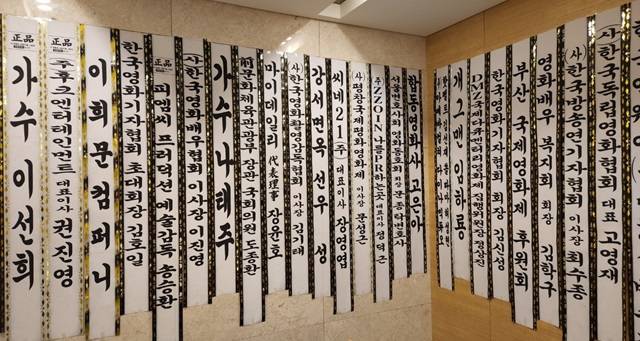 正品
가수 이선희
正品
(주)후크엔터테인먼트 대표이사 권진영
이희문컴퍼니
한국영화기자협회 초대회장 김호일
正品
피앰씨 프러덕션 예술감독 송승환
(사)한국영화배우협회 이사장 이진영
가수 나태주
前문화체육관광부 장관 국회의원 도종환
마이데일리 代表理事 장윤호
(사)한국영화촬영감독협회 이사장 김기태
강서면옥 선우 성
씨네21(주) 대표이사 장영엽
(사)평창국제평화영화제 이사장 문성근
(주)ZZOIN나를PR하는곳 대표이사 정덕근
서울변호사회 영화동호회 회장
합동영화사 고은아
개그맨 임하룡
DMZ국제다큐멘터리영화제 집행위원장 정상진
한국영화기자협회 회장 김신성
부산 국제영화제 후원회
영화배우 복지회 회장 김학구
(사)한국방송연기자협회 이사장 최수종
(사)한국독립영화협회 대표 고영재